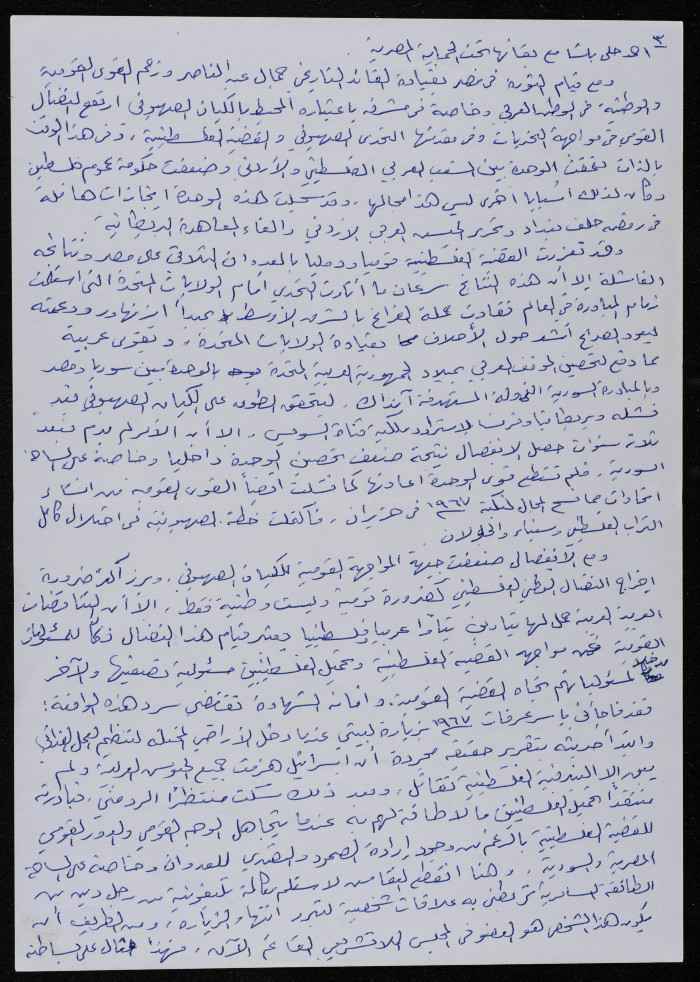 ٣
احمد حلمي باشا مع بقائها تحت الحماية المصرية
ومع قيام الثورة في مصر بقيادة القائد التاريخي جمال عبد الناصر وزخم القوى القومية
والوطنية في الوطن العربي وخاصة في مشرقه باعتباره المحيط بالكيان الصهيوني ارتفع النضال
القومي في مواجهة التحديات وفي مقدمتها التحدي الصهيوني والقضية الفلسطينية، وفي هذا الوقت
بالذات تحققت الوحدة بين الشعب العربي الفلسطيني والأردني وضعفت حكومة عموم فلسطين
وكان لذلك أسبابا أخرى ليس هذا مجالها، وقد سجلت هذه الوحدة انجازات هائلة
في رفض حلف بغداد وتحرير الجيش العربي الاردني والغاء المعاهدة البريطانية.
وقد تعززت القضية الفلسطينية قوميا ودوليا بالعدوان الثلاثي على مصر ونتائجه
الفاشلة إلا أن هذه النتائج سرعان ما أثارت التحدي أمام الولايات المتحدة التي استلمت
زمام المبادرة في العالم فقادت عملية الفراغ بالشرق الأوسط بمبدأ ايزنهاور ودعمته
ليعود الصراع أشد حول الأحلاف بقيادة الولايات المتحدة، وبقوى عربية
مما دفع لتحصين الموقف العربي بميلاد الجمهورية العربية المتحدة بالوحدة بين سوريا ومصر
وبالمبادرة السورية المستهدفة آنذاك. ليتحقق الطوق على الكيان الصهيوني بعد
فشله وبريطانيا وفرنسا لاسترداد ملكية قناة السويس، الا أن الأمر لم يدم فبعد
ثلاث سنوات حصل الانفصال نتيجة ضعف تحصين الوحدة داخليا وخاصة على الساحة
السورية، فلم تستطع قوى الوحدة اعادتها كما فشلت أيضا القوى القومية من انشاء
اتحادات مما فسح المجال لنكبة ١٩٦٧ في حزيران، فاكتملت خطة الصهيونية في احتلال كامل
التراب الفلسطيني وسيناء والجولان
ومع الانفصال ضعفت جبهة المواجهة القومية للكيان الصهيوني. وبرز أكثر ضرورة
اخراج النضال الوطني الفلسطيني كضرورة قومية وليست وطنية فقط. الا أن التناقضات
العربية العربية عربيا وفلسطينيا يعتبر قيام هذا النضال للمسئوليات
القومية في مواجهة القضية الفلسطينية وتحميل الفلسطينيين مسئولية تصفيتها والآخر
لمسئولياتهم تجاه القضية القومية. وأمانة الشهادة تقتضي سرد هذه الواقعة:
فقد فاجأني ياسر عرفات ١٩٦٧ بزيارة لبيتي عند دخل الأراضي المحتلة لتنظيم العمل الفدائي
وابتدأ حديثه بتقرير حقيقة مجردة أن اسرائيل هزمت جميع الجيوش العربية ولم
يبق إلا البندقية الفلسطينية تقاتل، وبعد ذلك سكت منتظرا الرد مني، فبادرته
منتقدا تحميل الفلسطينيين ما لا طاقة لهم به عندما يتجاهل الوجه القومي والدور القومي
للقضية الفلسطينية بالرغم من وجود إرادة الصمود والتصدي للعدوان وخاصة على الساحة
المصرية والسورية، وهنا انقطع النقاش لاستلام مكالمة تليفونية من رجل دين من
الطائفة السامرية تربطني به علاقات شخصية لتبرر انتهاء الزيارة، ومن الطريف أن
يكون هذا الشخص هو العضو في المجلس التشريعي القائم الآن، فهذا مثال على بساطته